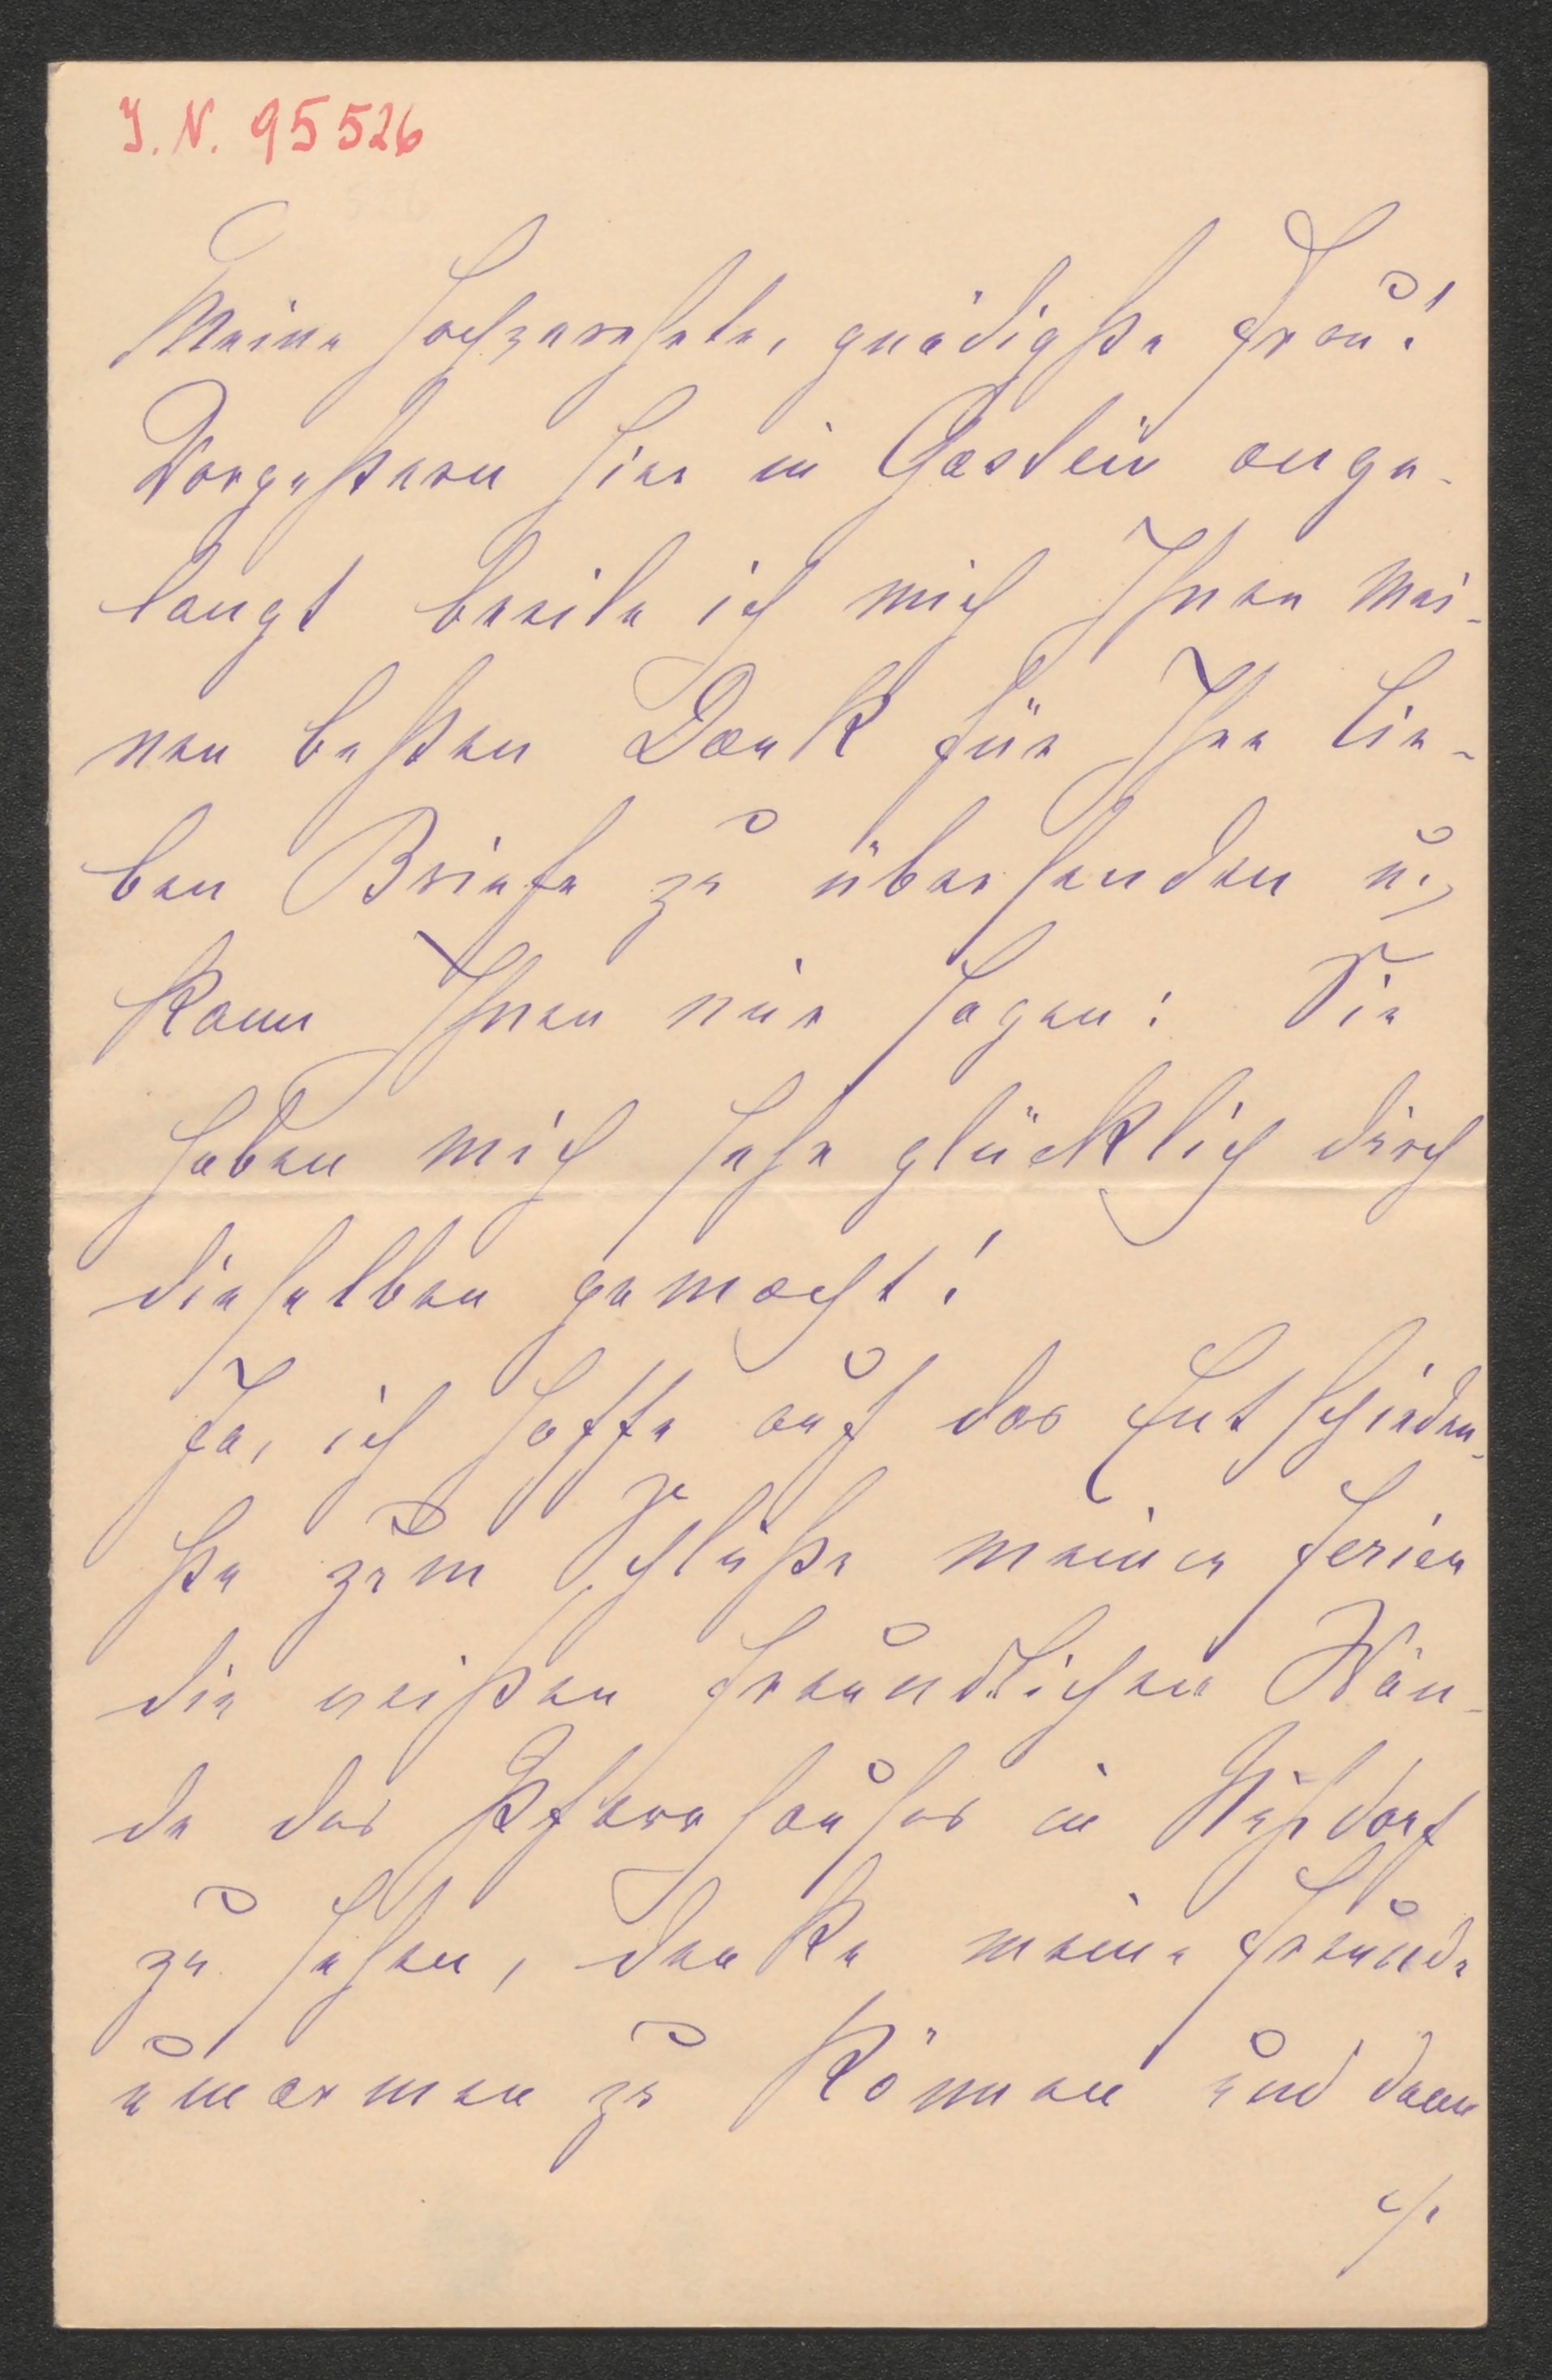 I. N. 95526
Meine hochverehrte, gnädigste Frau!
Vorgestern hier in Gastein ange-
langt beeile ich mich Ihnen mei-
nen besten Dank für Ihre lie-
ben Briefe zu übersenden u.
kann Ihnen nur sagen: Sie
haben mich sehr glücklich durch
dieselben gemacht!
Ja, ich hoffe auf das Entschieden-
ste zum Schluße meiner Ferien
die weißen freundlichen Wän-
de des Pfarrhauses in
zu sehen, denke meine Freunde
umarmen zu können und dann
./.